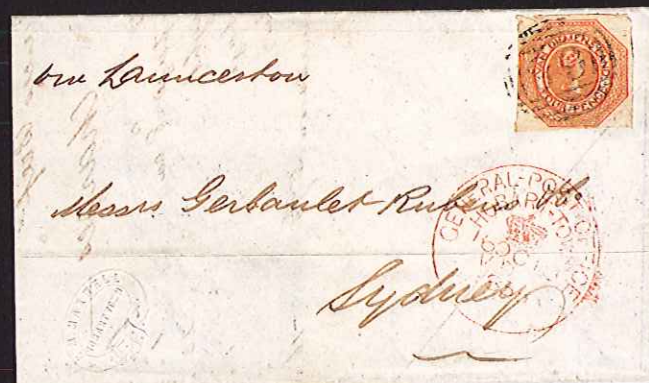 via Launceston
VAN DIEMEN'S LAND
FOURPENCE
Messrs Gerbaulet Rubens & Co
GENERAL-POST-OFFICE
HOBART-TOWN
Sydney